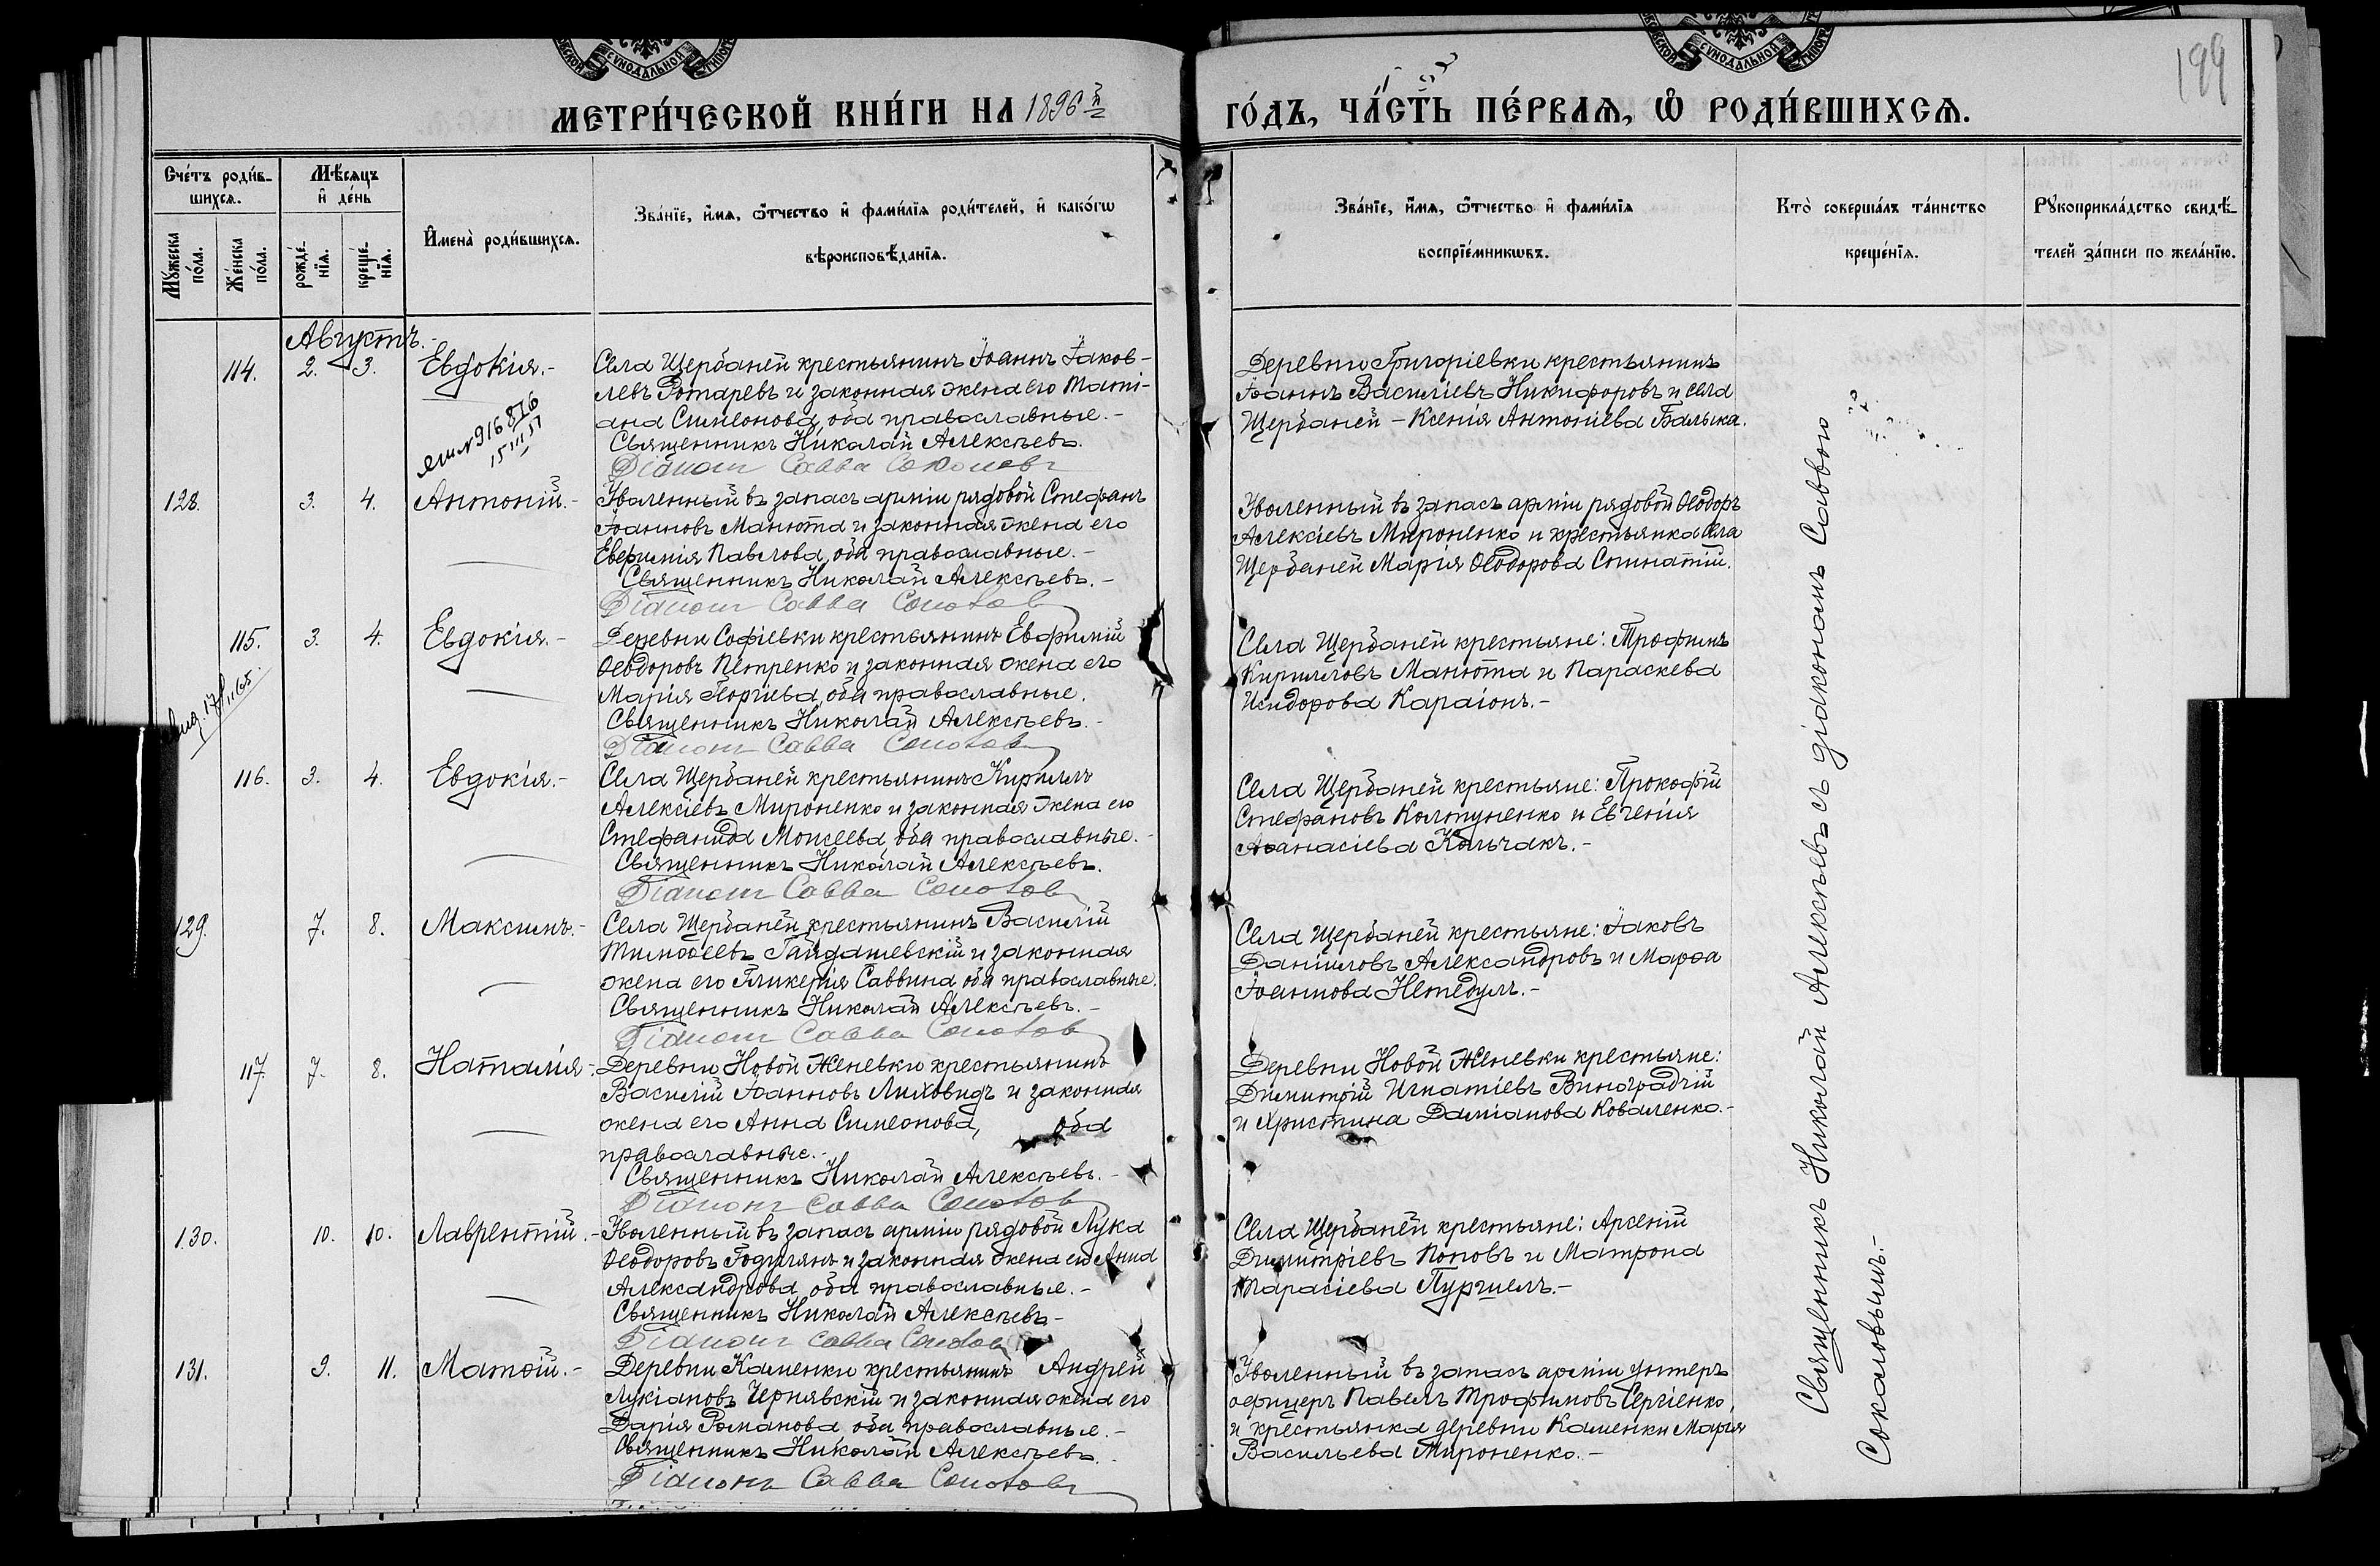 199
МЕТРИ́ЧЕСКОЙ КНИ́ГИ НА 1896й
ГО́ДЪ, ЧА́СТЬ ПЕ́РВАѦ, Ѡ҆ РОДИ́ВШИХСѦ.
Сче́тъ роди́в-
шихсѧ.
Мꙋ́жеска
по́ла.
Же́нска
по́ла.
Мѣ́сѧцъ
и҆ де́нь
рожде́-
нїѧ.
креще́-
нїѧ.
И҆мена̀ роди́вшихсѧ.
Зва́нїе, и҆́мѧ, ѻ҆́тчество и҆ фами́лїѧ роди́телей, и҆ како́гѡ
вѣроисповѣ́данїѧ.
Зва́нїе, и҆́мѧ, ѻ҆́тчество и҆ фами́лїѧ
воспрїе́мникѡвъ.
Кто̀ соверша́лъ та́инство
креще́нїѧ.
Рꙋкоприкла́дство свидѣ́-
телей за́писи по жела́нїю.
Августъ.
114. 2. 3. Евдокія.-
Села Щербаней крестьянинъ Іоаннъ Іаков-
левъ Ротаревъ и законная жена его Таті-
ана Симеонова, оба православные.-
Священникъ Николай Алексѣевъ.
Діаконъ Савва Соколовъ
Деревни Григоріевки крестьянинъ
Іоаннъ Василіевъ Никифоровъ и села
Щербаней - Ксенія Антоніева Балыка.
128. 3. 4. Антоній.-
Уволенный въ запасъ арміи рядовой Стефанъ
Іоанновъ Манюта и законная жена его
Евфимія Павлова, оба православные.-
Священникъ Николай Алексѣевъ.-
Діаконъ Савва Соколов
Уволенный въ запасъ арміи рядовой Ѳеодоръ
Алексіевъ Мироненко и крестьянка села
Щербаней Марія Ѳеодорова Спинатій.
115. 3. 4. Евдокія.-
Деревни Софіевки крестьянинъ Евфимій
Ѳеодоровъ Петренко и законная жена его
Марія Георгіева, оба православные.
Священникъ Николай Алексѣевъ.-
Діаконъ Савва Соколов
Села Щербаней крестьяне: Трофимъ
Кирилловъ Манюта и Параскева
Исидорова Караіонъ.-
116. 3. 4. Евдокія.-
Села Щербаней крестьянинъ Кириллъ
Алексіевъ Мироненко и законная жена его
Стефанида Моисеева, оба православные.-
Священникъ Николай Алексѣевъ.
Діаконъ Савва Соколов
Села Щербаней крестьяне: Прокофій
Стефановъ Колтуненко и Евгенія
Аѳанасіева Кольчакъ.-
129. 7. 8. Максимъ.-
Села Щербаней крестьянинъ Василій
Тимоѳеевъ Гайдашевскій и законная
жена его Гликерія Саввина, оба православные.
Священникъ Николай Алексѣевъ.-
Діаконъ Савва Соколов
Села Щербаней крестьяне: Іаковъ
Даніиловъ Александровъ и Марѳа
Іоаннова Непедулъ.-
117. 7. 8. Наталія.-
Деревни Новой Женевки крестьянинъ
Василій Іоанновъ Лиховидъ и законная
жена его Анна Симеонова, оба
православные.-
Священникъ Николай Алексѣевъ.-
Діаконъ Савва Соколов
Деревни Новой Женевки крестьяне:
Димитрій Игнатіевъ Виноградчій
и Христина Даміанова Коваленко.-
130. 10. 10. Лаврентій.-
Уволенный въ запасъ арміи рядовой Лука
Ѳеодоровъ Годулянъ и законная жена его Анна
Александрова, оба православные.-
Священникъ Николай Алексѣевъ-
Діаконъ Савва Соколов
Села Щербаней крестьяне: Арсеній
Димитріевъ Поповъ и Матрона
Тарасіева Пургиелъ.-
131. 9. 11. Матѳій.-
Деревни Каменки крестьянинъ Андрей
Лукіановъ Чернявскій и законная жена его
Дарія Романова, оба православные.-
Священникъ Николай Алексѣевъ.
Діаконъ Савва Соколовъ
Уволенный въ запасъ арміи унтеръ
офицеръ Павелъ Трофимовъ Сергіенко,
и крестьянка деревни Каменки Марія
Васильева Мироненко.-
Священникъ Николай Алексѣевъ съ діакономъ Саввою
Соколовымъ.-